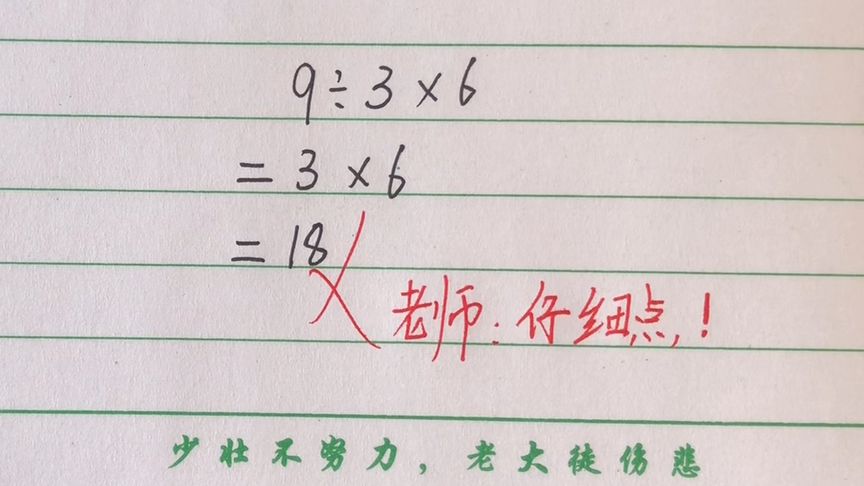 9÷3×6
=3×6
=18
老师:仔细点!
少壮不努力,老大徒伤悲